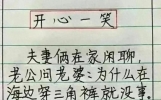 开心一笑
夫妻俩在家闲聊,
老公问老婆:为什么在
海边穿三角裤就没事,